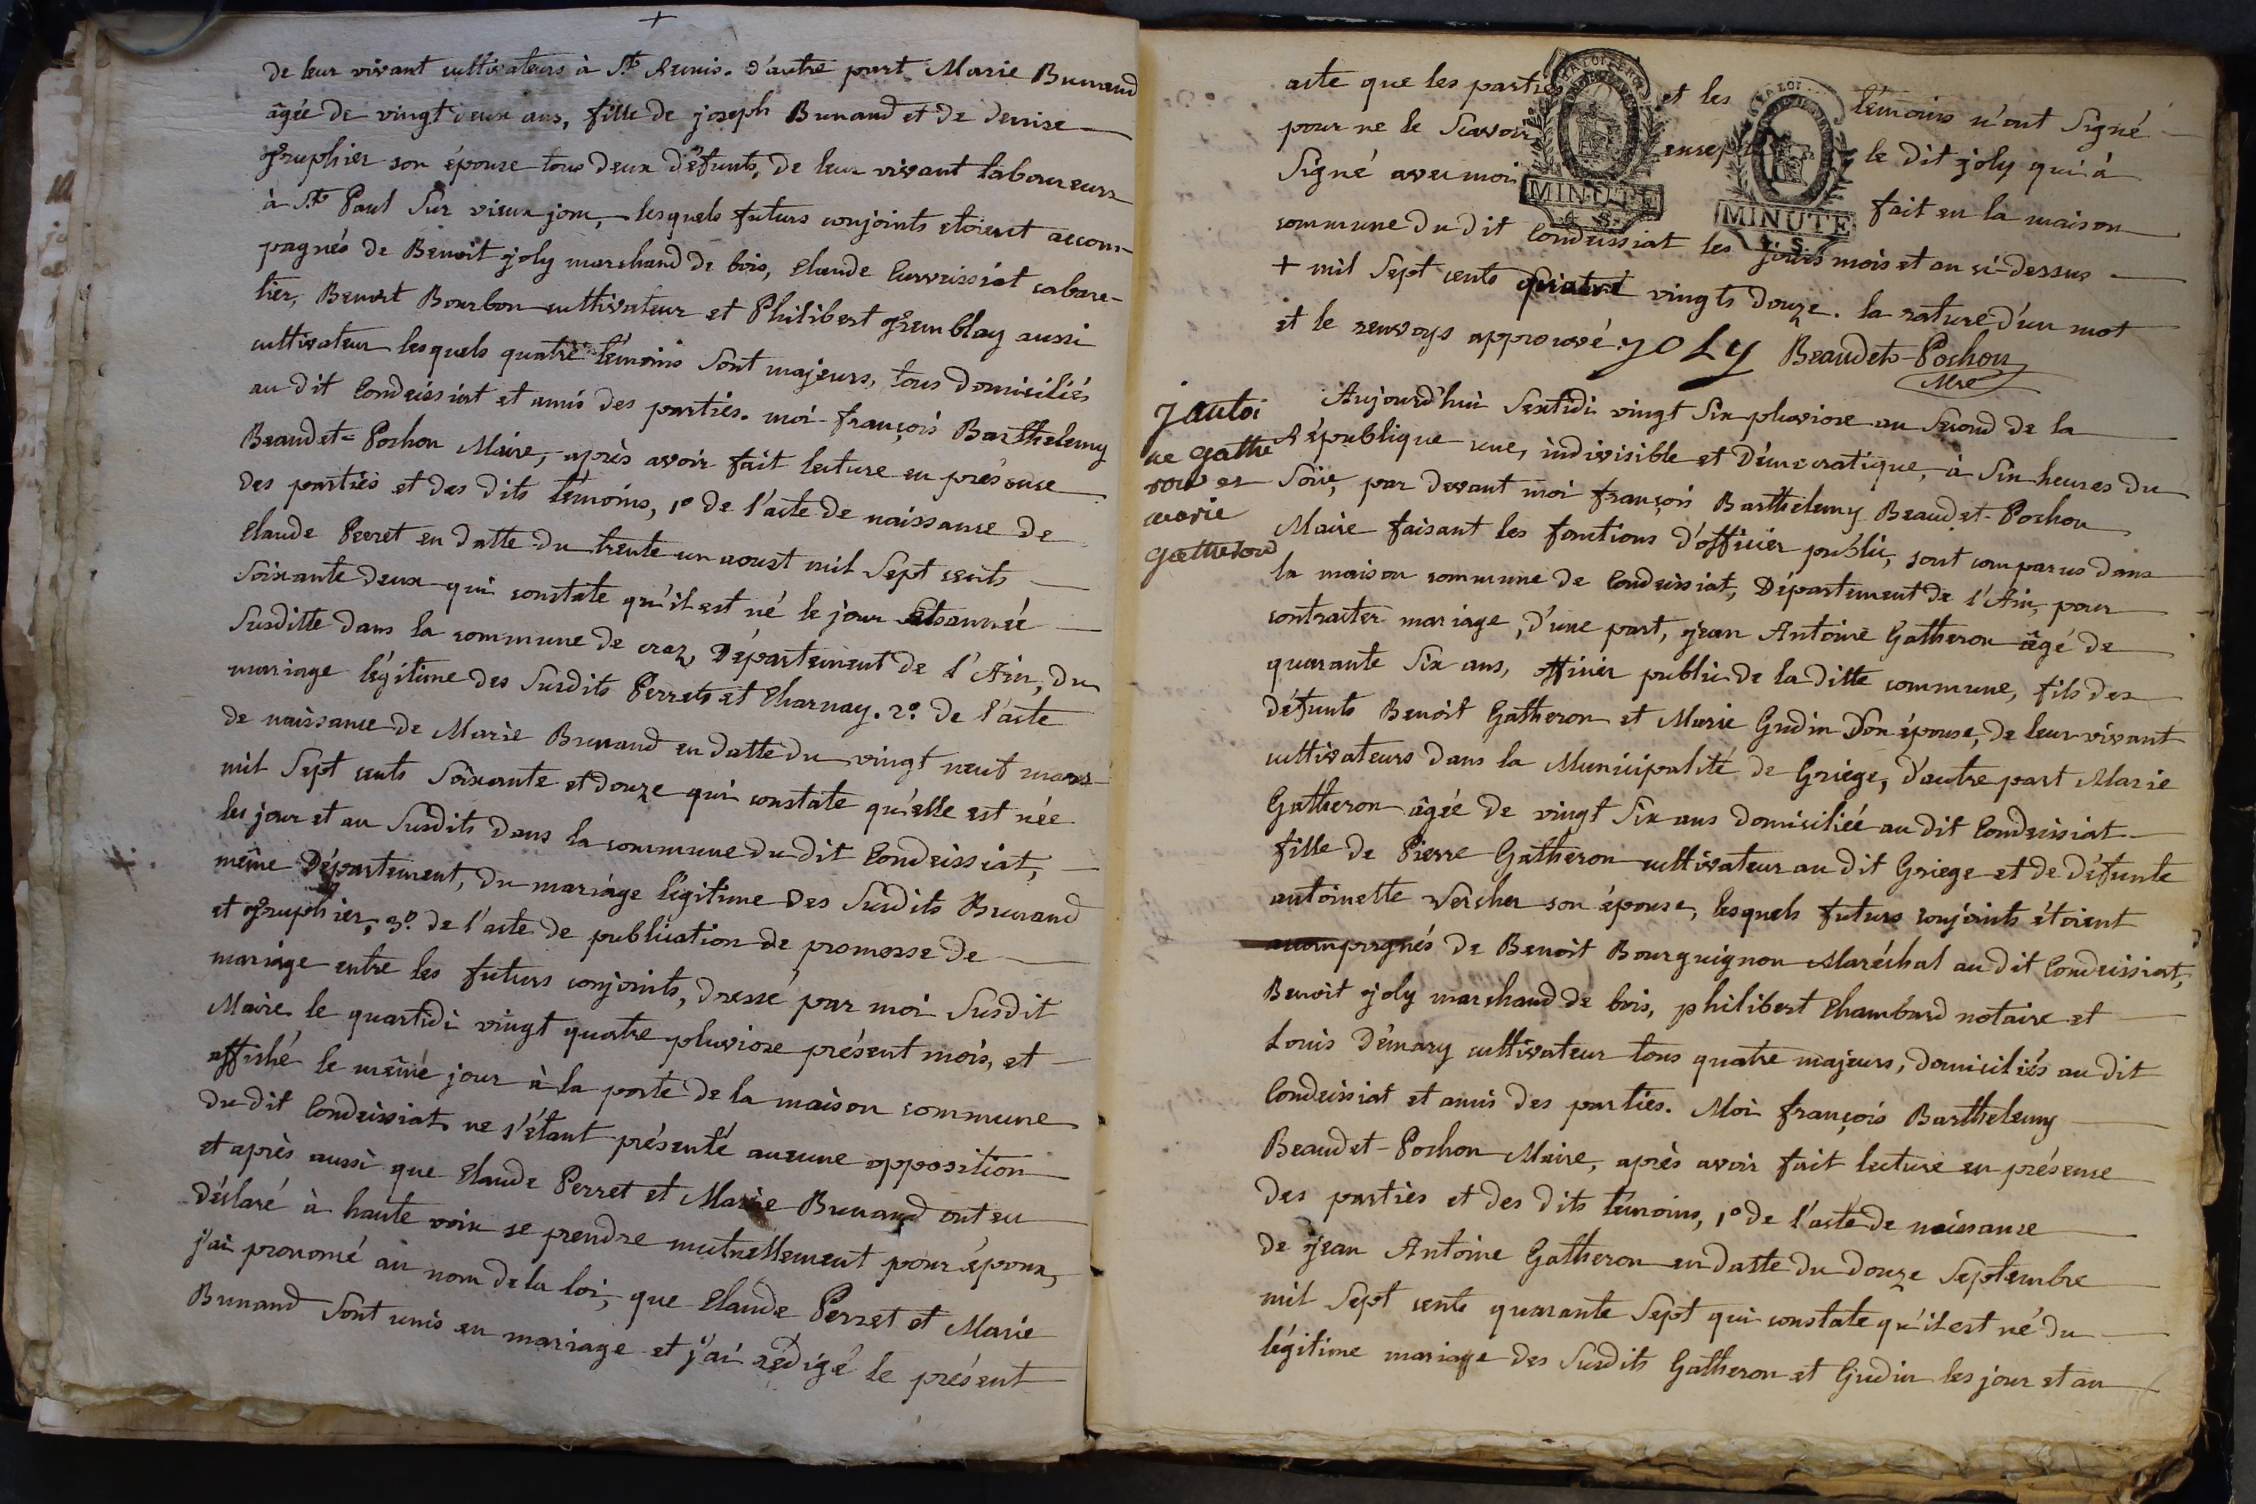 +
de leur vivant cultivateurs à St Remis. d'autre part Marie Bunand
âgée de vingt deux ans, fille de joseph Bunand et de denise
gruphier son épouse tous deux défunts, de leur vivant laboureurs
à St Paul Sur vieux jonc, lesquels futurs conjoints etoient accom-
pagnés de Benoit joly marchand de bois, Claude Curveissiat cabare-
tier, Benoit Bourbon cultivateur et Philibert gremblay aussi
cultivateur lesquels quatre témoins Sont majeurs, tous domiciliés
au dit Condeissiat et amis des parties. moi françois Barthelemy
Beaudet=Pochon Maire, après avoir fait lecture en présence
des parties et des dits témoins, 1º de l'acte de naissance de
Claude Perret en datte du trente un aoust mil Sept cents
Soixante deux qui constate qu'il est né le jour et année
Susditte dans la commune de craz, Département de l'Ain, du
mariage légitime des Susdits Perrets et Charnay. 2º de l'acte
de naissance de Marie Bunand en datte du vingt neuf mars
mil Sept cents Soixante et douze qui constate qu'elle est née
les jour et an Susdits dans la commune du dit Condeissiat,
même Département, du mariage légitime des Susdits Bunand
et gruphier, 3º de l'acte de publication de promesse de
mariage entre les futurs conjoints, dressé par moi Susdit
Maire le quartidi vingt quatre pluviose présent mois, et
affiché le même jour à la porte de la maison commune
du dit Condeissiat ne s'étant présenté aucune opposition
et après aussi que Claude Perret et Marie Bunand ont eu
déclaré à haute voix se prendre mutuellement pour époux,
j'ai prononcé au nom de la loi, que Claude Perret et Marie
Bunand Sont unis en mariage et j'ai rédigé le présent
acte que les parties et les témoins n'ont Signé
pour ne le Scavoir excepté le dit joly qui à
Signé avec moi fait en la maison
MINUTE
4 S.
MINUTE
4 S.
commune du dit Condeissiat les jours mois et an ci-dessus
+ mil Sept cents quatre vingts douze. la rature d'un mot
et le renvoys approuvé. JOLY Beaudet-Pochon
Mre
j antoi
ne gathe
ron et
marie
gatheron
Aujourd'hui Sextidi vingt Six pluviose an Second de la
République une, indivisible et Démocratique, à Six heures du
Soir, par devant moi françois Barthelemy Beaudet-Pochon
Maire faisant les fonctions d'officier public, sont comparus dans
la maison commune de Condeissiat, Département de l'Ain, pour
contracter mariage, d'une part, jean Antoine Gatheron âgé de
quarante Six ans, officier public de la ditte commune, fils des
défunts Benoit Gatheron et Marie Gudin Son épouse, de leur vivant
cultivateurs dans la Municipalité de Griége, d'autre part Marie
Gatheron âgée de vingt Six ans domiciliée au dit Condeissiat
fille de Pierre Gatheron cultivateur au dit Griege et de défunte
antoinette Vercher son épouse, lesquels futurs conjoints étoient
accompagnés de Benoit Bourguignon Maréchal au dit Condeissiat,
Benoit joly marchand de bois, philibert Chambard notaire et
Louis Démary cultivateur tous quatre majeurs, domiciliés au dit
Condeissiat et amis des parties. Moi françois Barthelemy
Beaudet-Pochon Maire, après avoir fait lecture en présence
des parties et des dits témoins, 1º de l'acte de naissance
de jean Antoine Gatheron en datte du douze Septembre
mil Sept cents quarante Sept qui constate qu'il est né du
légitime mariage des Susdits Gatheron et Gudin les jour et an